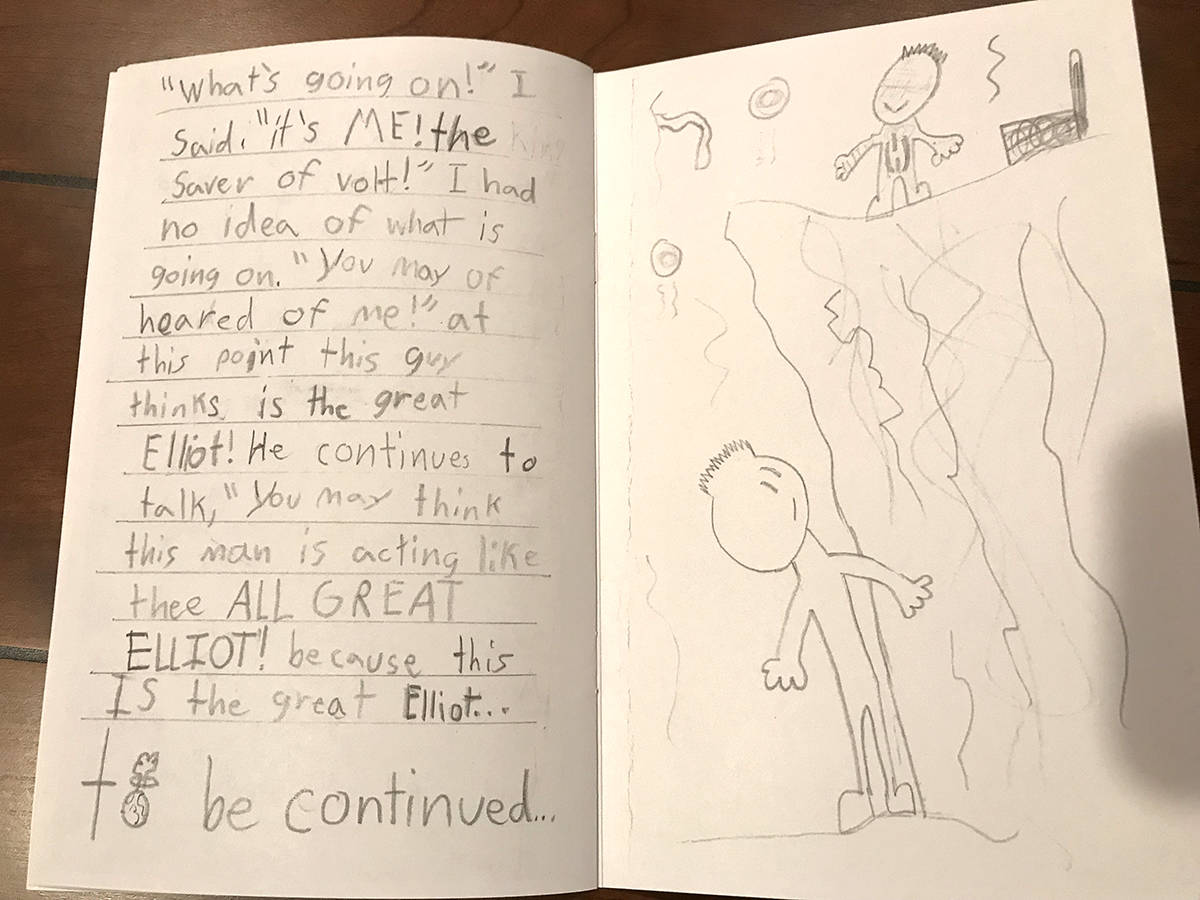 "What's going on!" I
said. "it's ME! the
saver of volt!" I had
no idea of what is
going on. "You may of
heared of me!" at
this point this guy
thinks is the great
Elliot! He continues to
talk, "You may think
this man is acting like
thee ALL GREAT
ELLIOT! because this
IS the great Elliot...
to be continued...